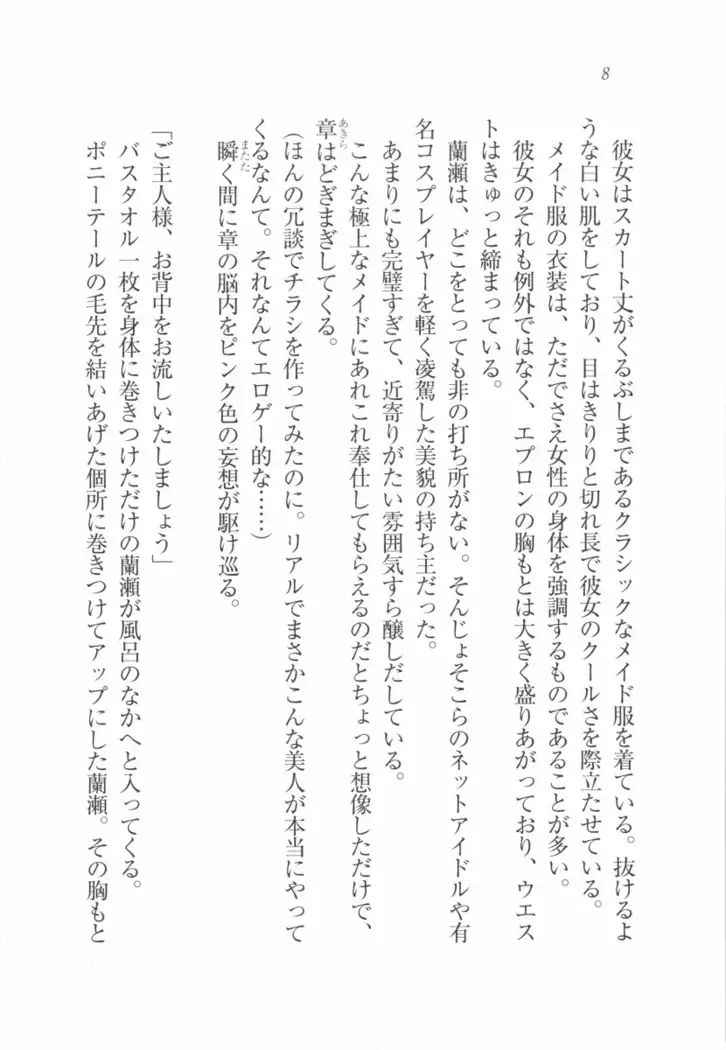 8
彼女はスカート丈がくるぶしまであるクラシックなメイド服を着ている。抜けるよ
うな白い肌をしており、目はきりりと切れ長で彼女のクールさを際立たせている。
メイド服の衣装は、ただでさえ女性の身体を強調するものであることが多い。
彼女のそれも例外ではなく、エプロンの胸もとは大きく盛りあがっており、ウエス
トはきゅっと締まっている。
蘭瀬は、どこをとっても非の打ち所がない。そんじょそこらのネットアイドルや有
名コスプレイヤーを軽く凌駕した美貌の持ち主だった。
あまりにも完璧すぎて、近寄りがたい雰囲気すら醸しだしている。
こんな極上なメイドにあれこれ奉仕してもらえるのだとちょっと想像しただけで、
章はどぎまぎしてくる。
あきら
(ほんの冗談でチラシを作ってみたのに。リアルでまさかこんな美人が本当にやって
くるなんて。それなんてエロゲー的な……)
瞬く間に章の脳内をピンク色の妄想が駆け巡る。
またた
「ご主人様、お背中をお流しいたしましょう」
バスタオル一枚を身体に巻きつけただけの蘭瀬が風呂のなかへと入ってくる。
ポニーテールの毛先を結いあげた個所に巻きつけてアップにした蘭瀬。その胸もと